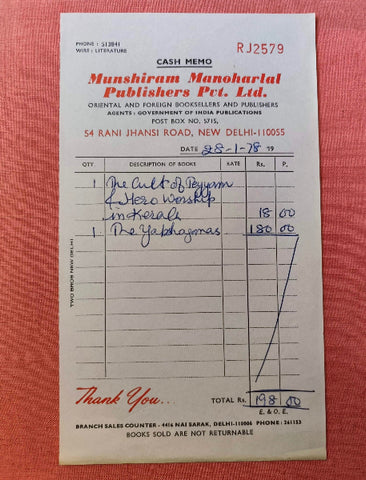 PHONE : 513841
WIRE : LITERATURE
RJ2579
CASH MEMO
Munshiram Manoharlal
Publishers Pvt. Ltd.
ORIENTAL AND FOREIGN BOOKSELLERS AND PUBLISHERS
AGENTS : GOVERNMENT OF INDIA PUBLICATIONS
POST BOX NO. 5715,
54 RANI JHANSI ROAD, NEW DELHI-110055
DATE 28-1-78 19
QTY. DESCRIPTION OF BOOKS RATE Rs. P.
1 The Cult of Teyyam
& Hero Worship
in Kerala 18 00
1 The Yakshaganas 180 00
TWO BROS NEW DELHI
Thank You...
TOTAL Rs. 198 00
E. & O. E.
BRANCH SALES COUNTER - 4416 NAI SARAK, DELHI-110006 PHONE : 261153
BOOKS SOLD ARE NOT RETURNABLE